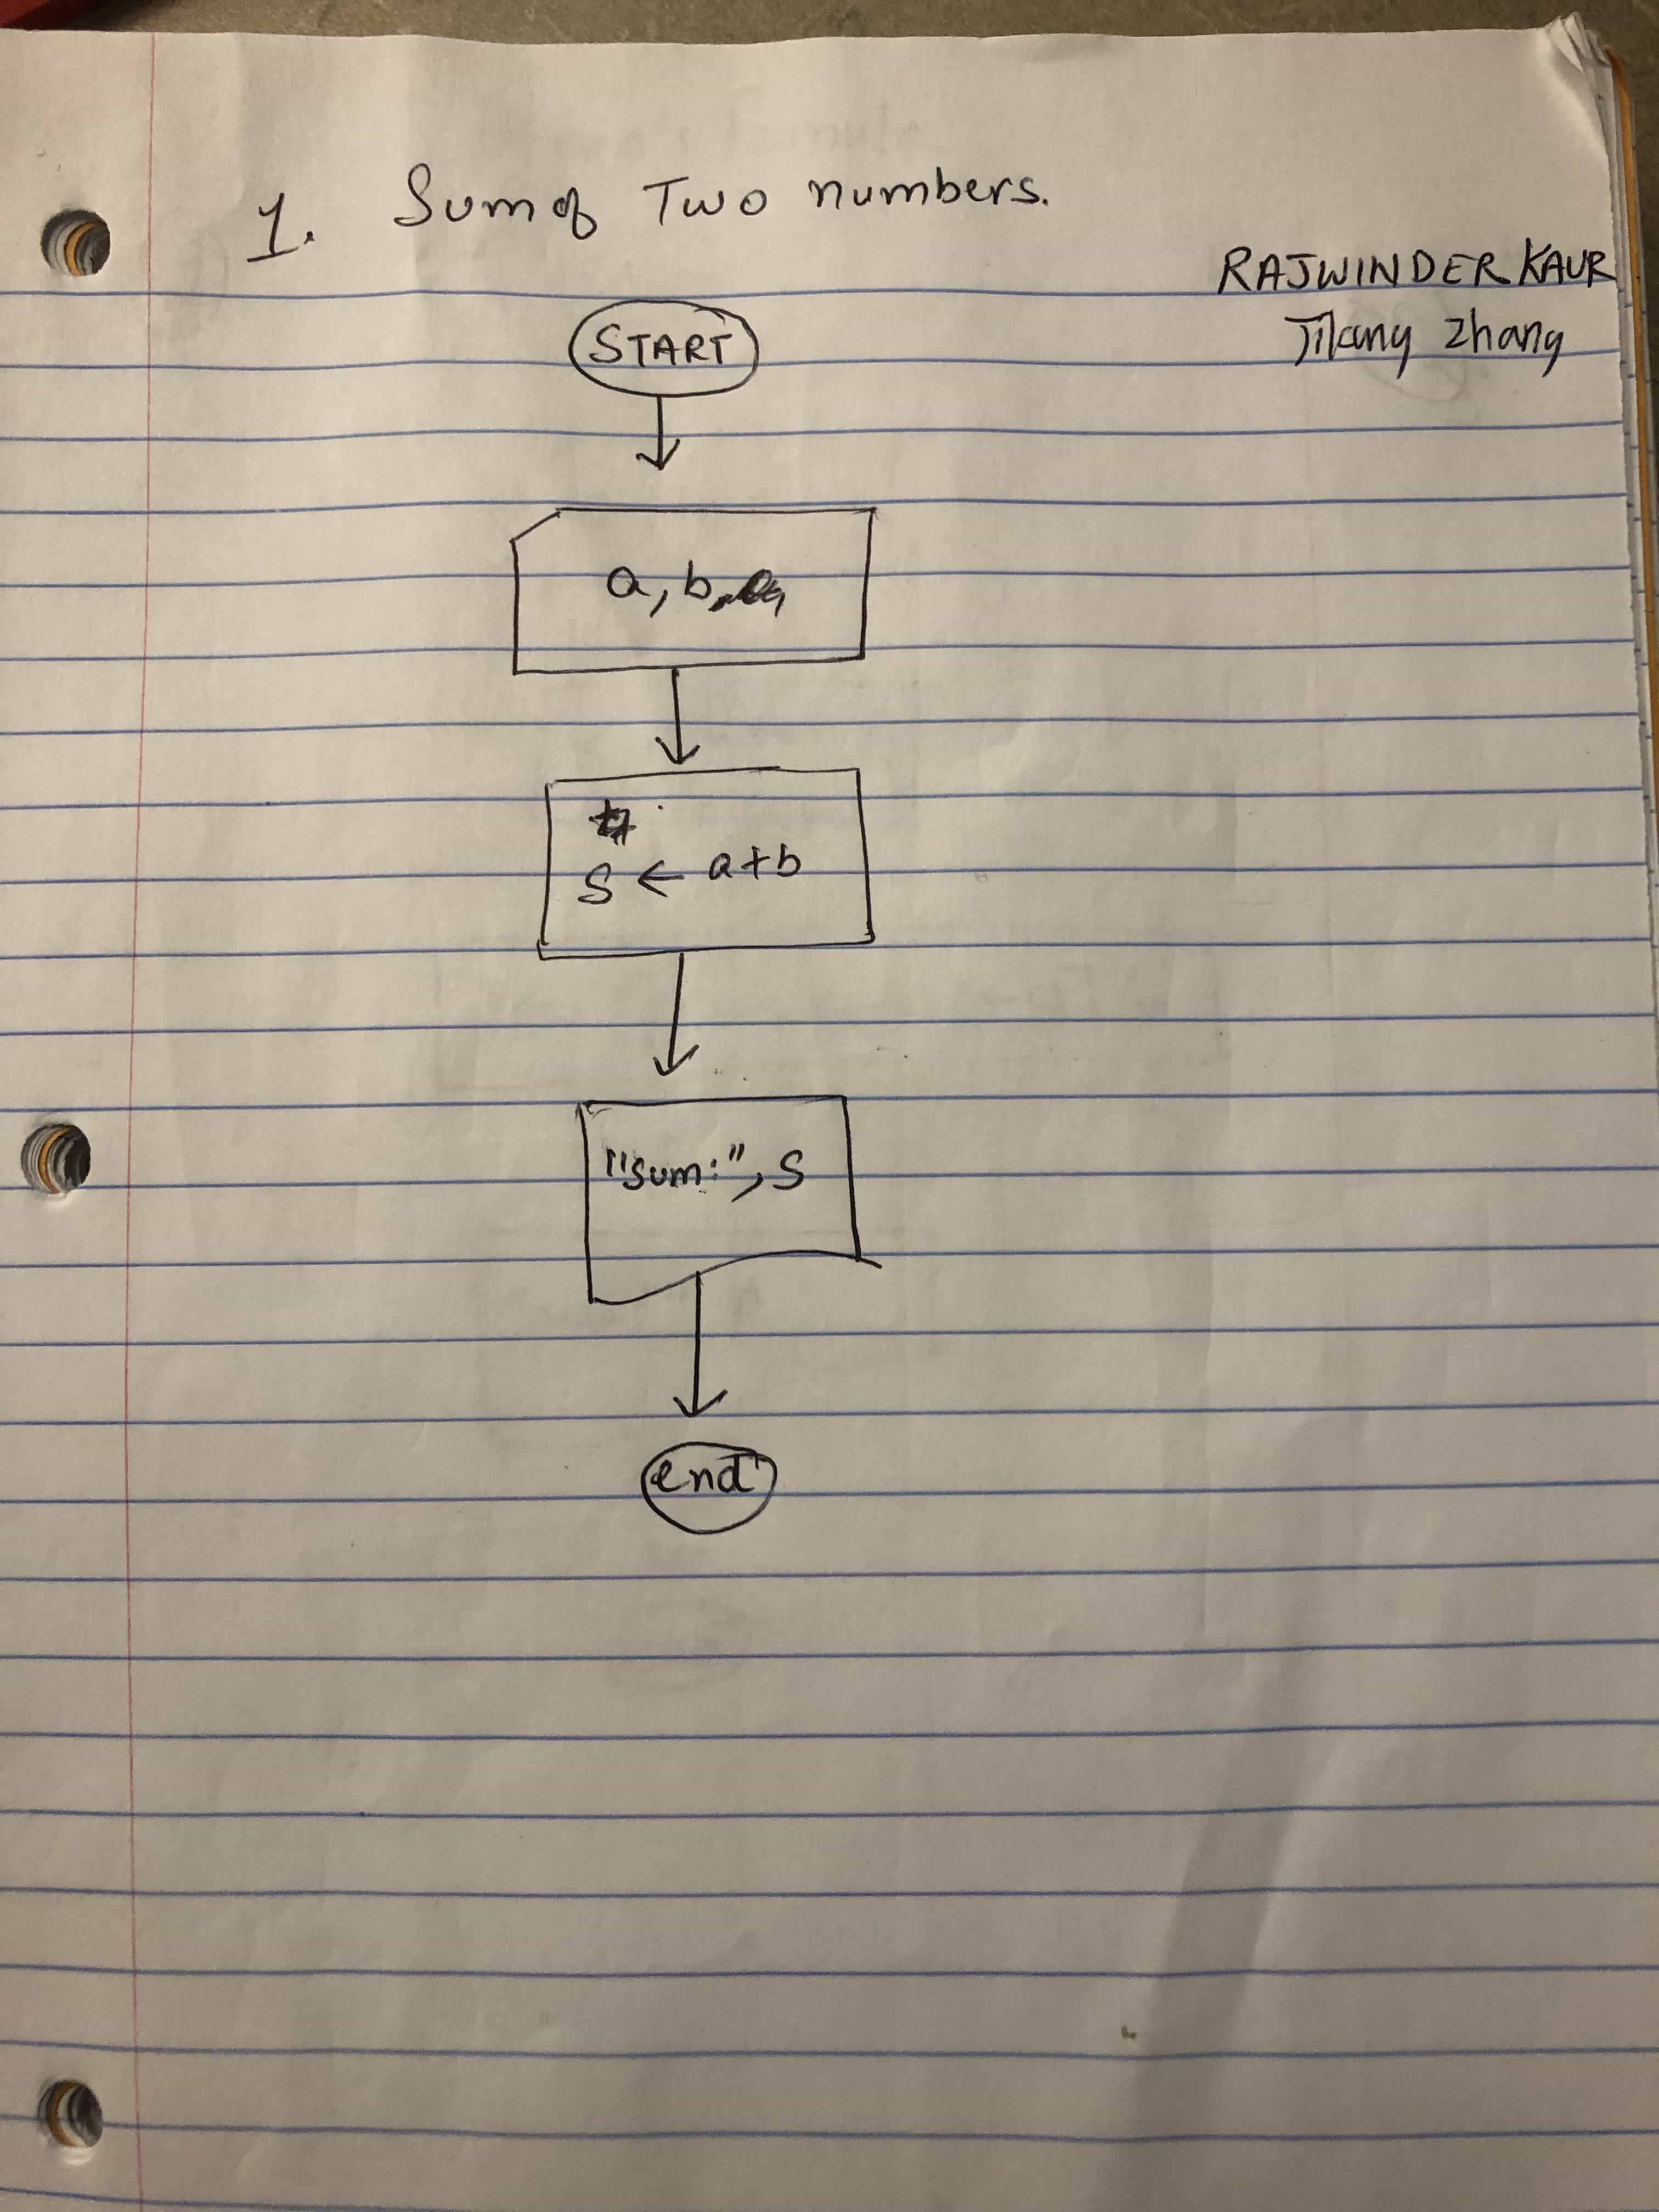 1. Sum of Two numbers.
RAJWINDER KAUR
Zhang
START
a, b
S ← a+b
"sum:", S
end